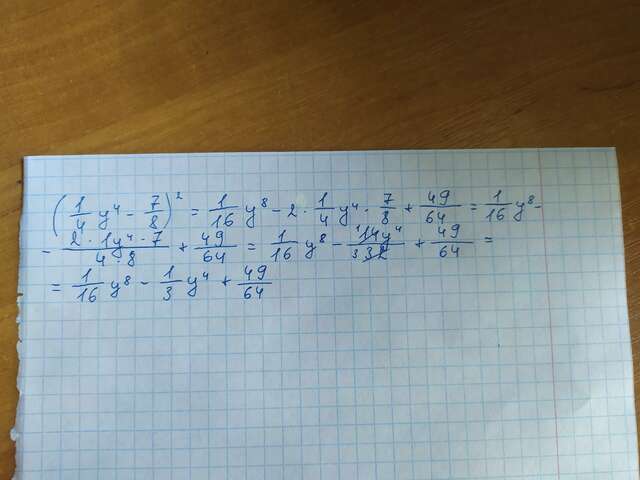 (1/4 y⁴ - 7/8)² = 1/16 y⁸ - 2 · 1/4 y⁴ · 7/8 + 49/64 = 1/16 y⁸ -
- (2 · 1y⁴ · 7)/(4 · 8) + 49/64 = 1/16 y⁸ - ¹14y⁴/₃32 + 49/64 =
= 1/16 y⁸ - 1/3 y⁴ + 49/64